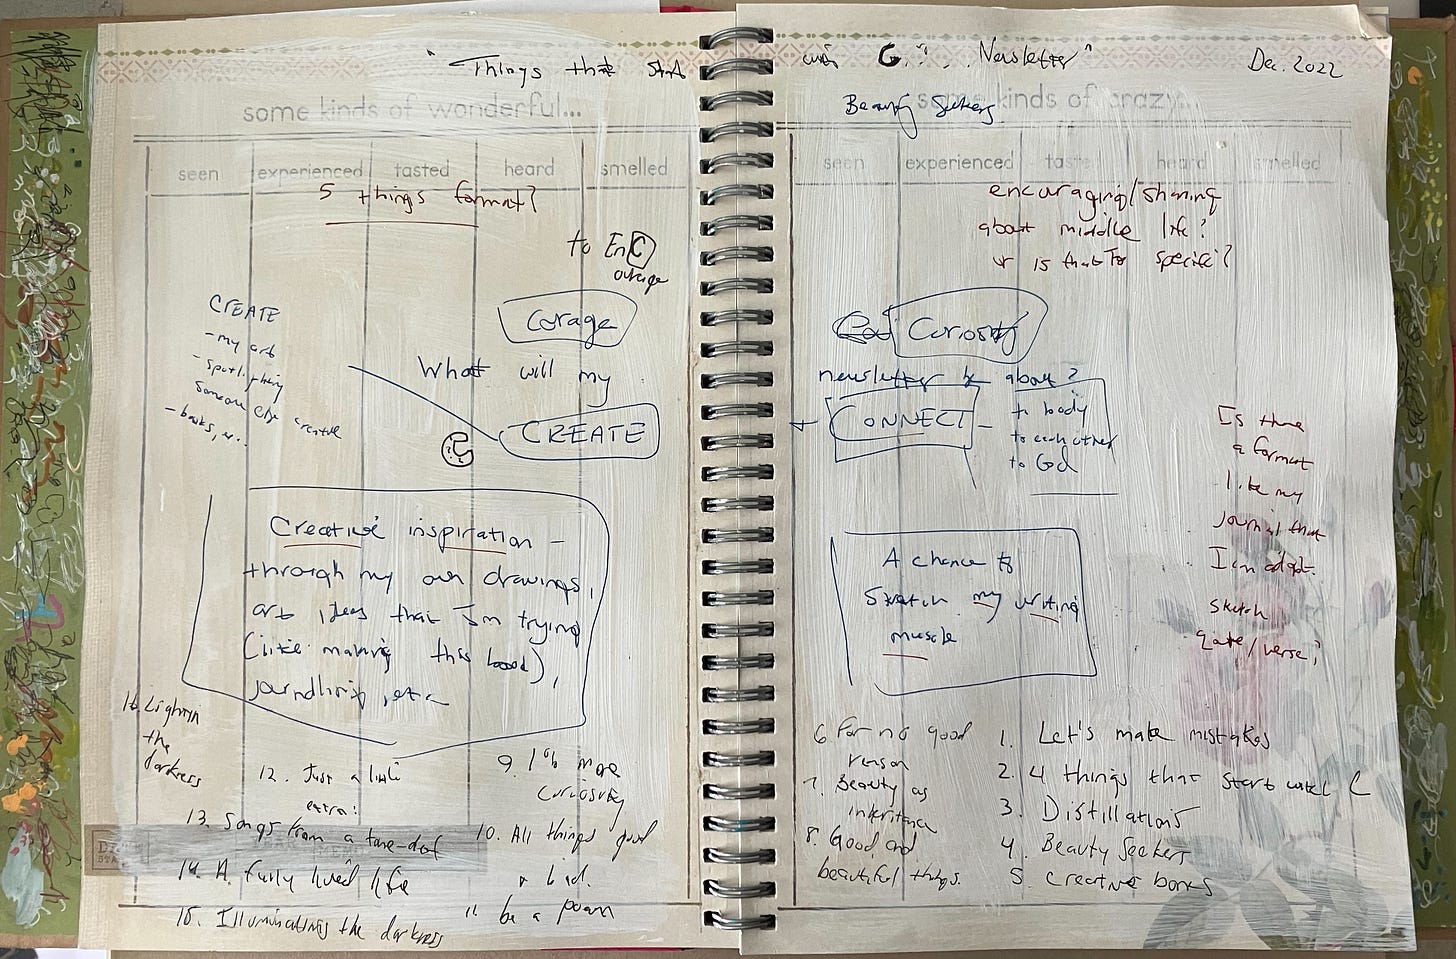 "Things that start
some kinds of wonderful...
seen experienced tasted heard smelled
5 things format?
to EnC
ourage
CREATE
- my art
- spotlighting
someone else creative
- books, 
Corage
What will my
CREATE
C
Creative inspiration -
through my own drawings,
art ideas that I'm trying
(like making this book),
journaling, etc
16. Lightnin
the
darkness
12. Just a little
extra:
13. Songs from a tone-deaf
14. A fully lived life
15. Illuminating the darkness
9. 1% more
curiosity
10. All things good
& bad.
11. be a poem
with C. . . . Newsletter"
Dec. 2022
Beauty Seekers
some kinds of crazy...
seen experienced taste heard smelled
encuraging/sharing
about middle life?
or is that too specific?
Curiosity
newsletter be about?
CONNECT -
to body
to each other
to God
Is there
a format
like my
journal that
I can adapt.
sketch
quote/verse?
A chance to
Stretch my writing
muscle
6. For no good
reason
7. Beauty as
inheritance
8. Good and
beautiful things.
1. Let's make mistakes
2. 4 things that start with C
3. Distillations
4. Beauty Seekers
5. Creative bones